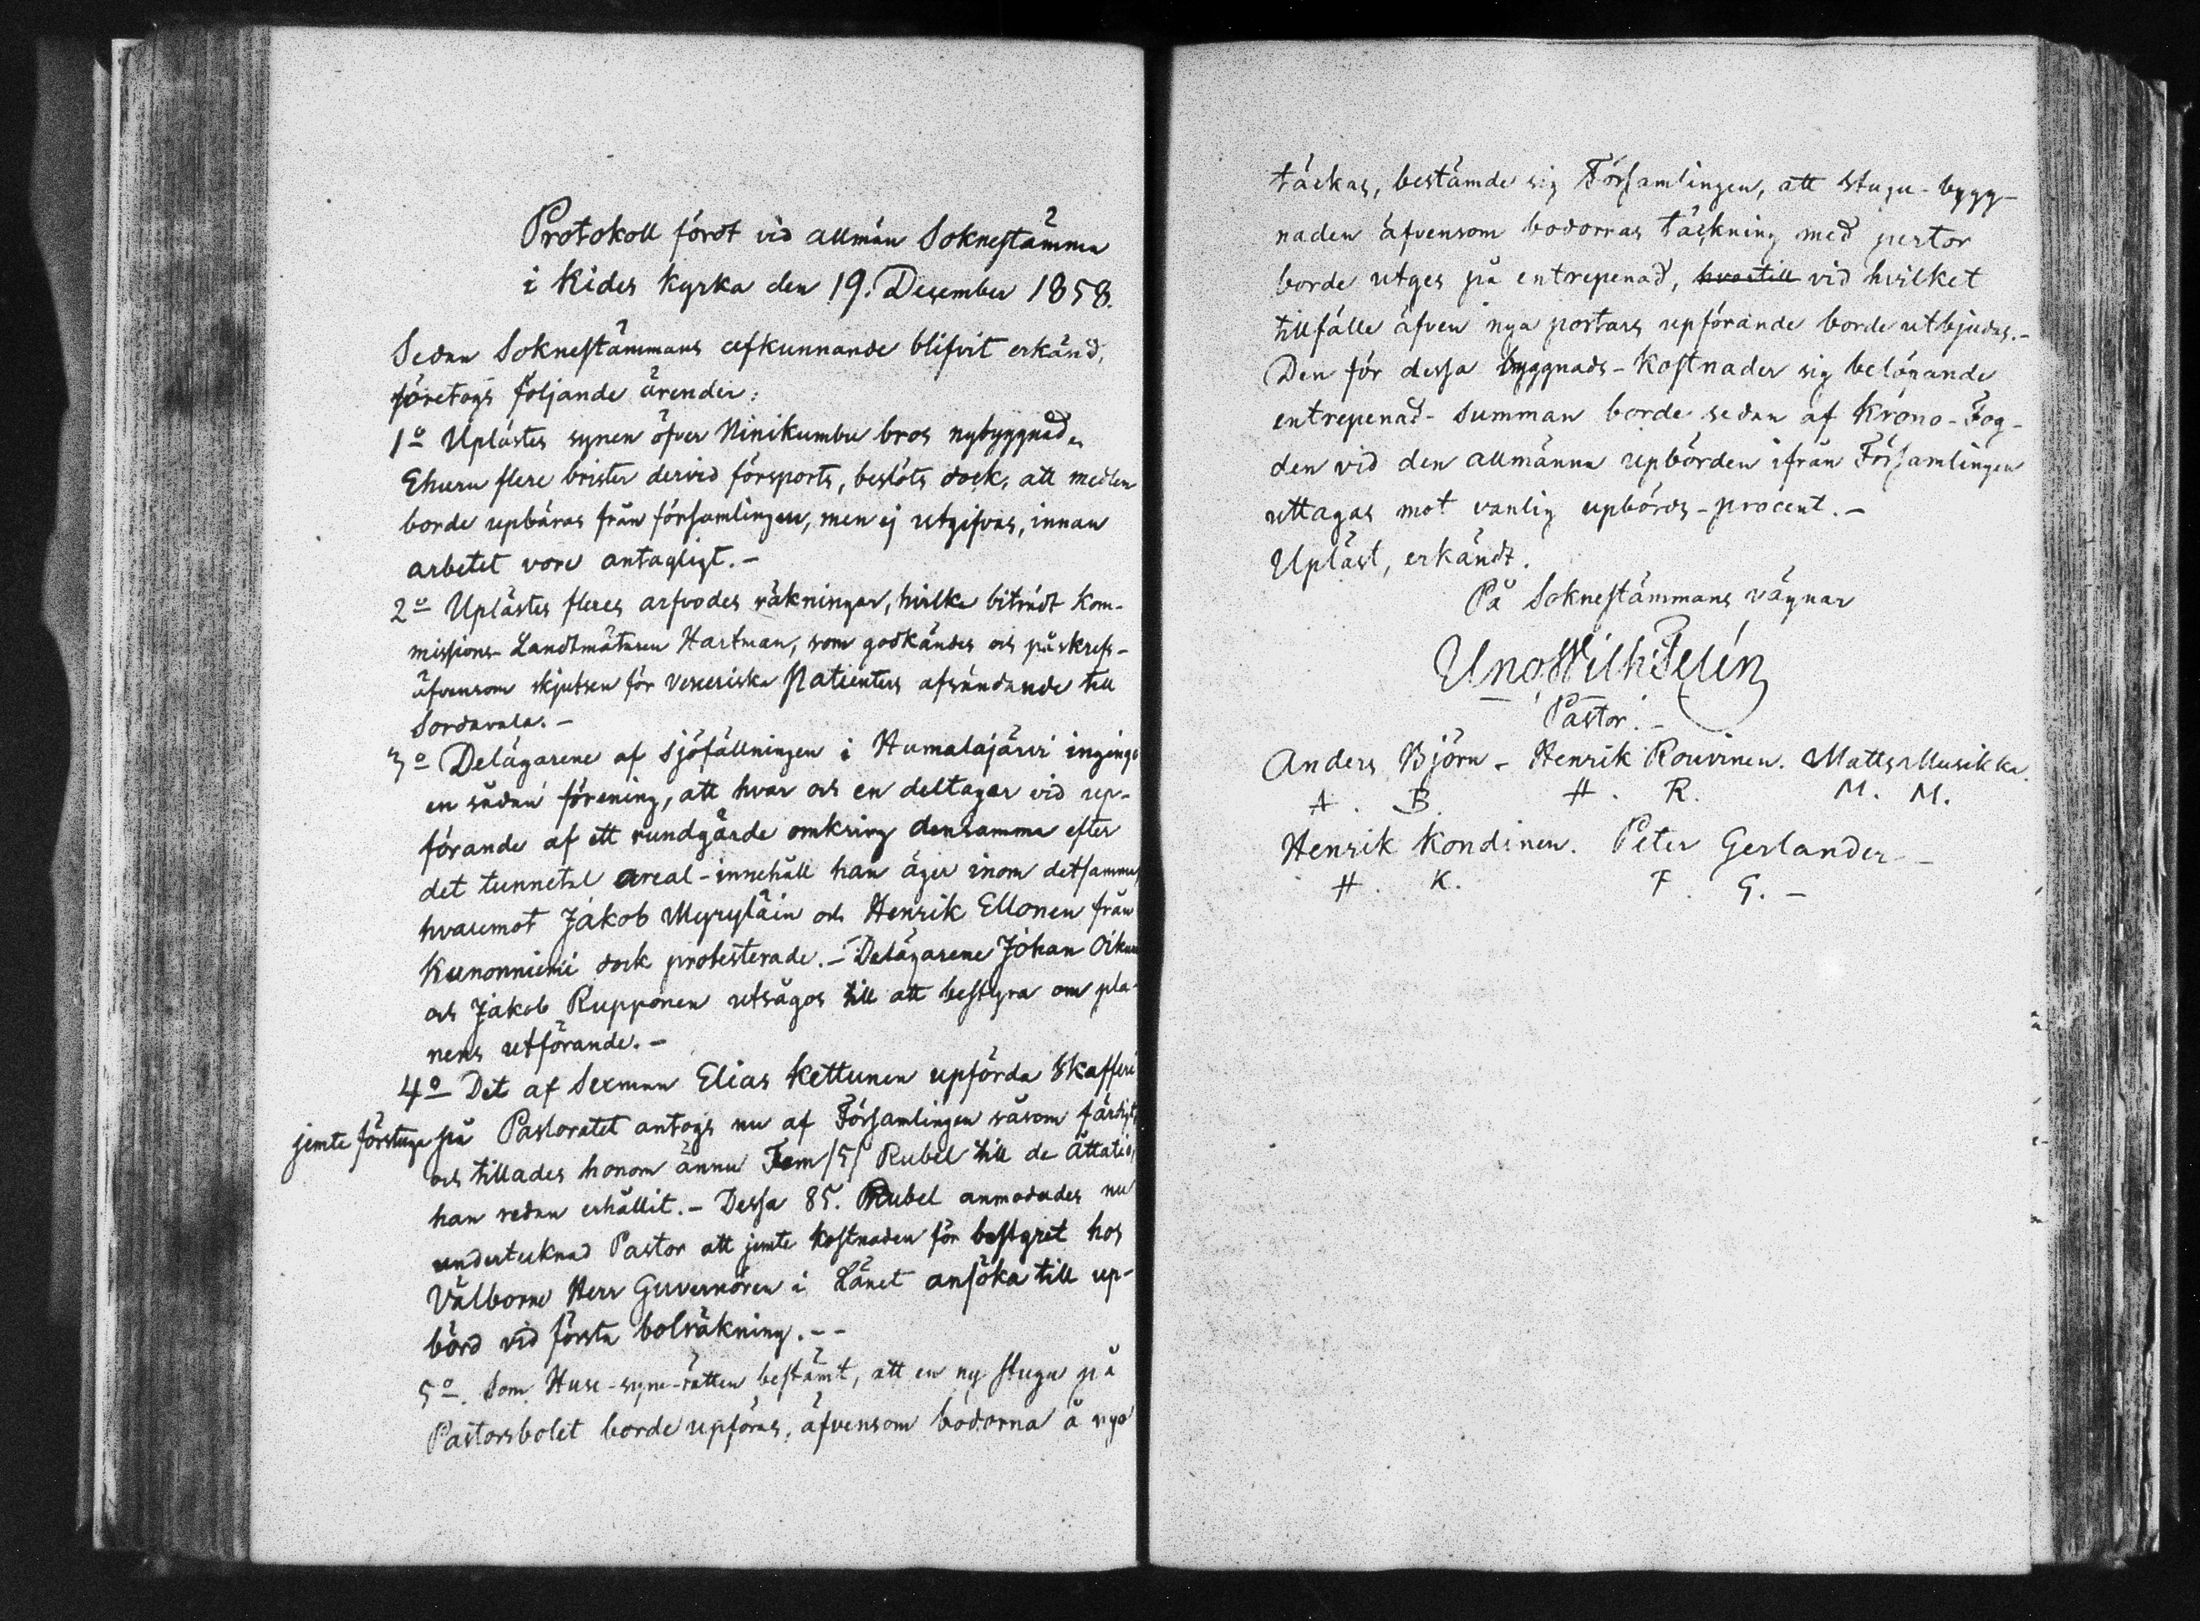 Protokoll fördt vid allmän Sokneſtämma
i Kides Kyrka den 19. December 1858.
Sedan Sokneſtämmans afkunnande blifvit erkänd,
företogs följande ärender:
1o Uplästes synen öfver Ninikumbu bros nybyggnad.
Ehuru flere brister dervid försports, beslöts dock, att medlen
borde upbäras från förſamlingen, men ej utgifvas, innan
arbetet vore antagligt. –
2o Uplästes fleres arfvodes räkningar, hvilka biträdt Kom-
misſions Landtmätaren Hartman, som godkändes och påskrefs –
äfvensom skjutsen för veneriska Patienters afsändande till
Sordavala. –
3o Delägarene af sjöfällningen i Humalajärvi ingingo
en sådan förening, att hvar och en deltager vid up-
förande af ett rundgärde omkring densamma efter
det tunnetal areal-innehåll han äger inom detſamma,
hvaremot Jakob Myryläin och Henrik Ellonen från
Kunonniemi dock protesterade. – Delägarene Johan
och Jakob Rupponen utsågos till att beſtyra om pla-
nens utförande. –
4o Det af Sexman Elias Kettunen upförda Skafferi
jemte förstuga på Pastoratet antogs nu af Förſamlingen såsom färdigt,
och tillades honom ännu Fem /5/ Rubel till de Åttatio,
han redan erhållit. – Desſa 85. Rubel anmodades nu
undertecknad Pastor att jemte koſtnaden för beſtyret hos
Välborne Herr Guvernören i Länet anſöka till up-
börd vid förſta bolräkning. – –
5o. Som Huse-syne-rätten beſtämt, att en ny ſtuga på
Pastorsbolet borde upföras, äfvensom bodorna å nyo
täckas, bestämde sig Förſamlingen, att stugu-bygg-
naden äfvensom bodornas täckning med pertor
borde utges på entrepenad, hvartill vid hvilket
tillfälle äfven nya portars upförande borde utbjudas. –
Den för desſa byggnads-koſtnader sig belöpande
entrepenad-summan borde sedan af Krono-Fog-
den vid den allmänna upbörden ifrån Förſamlingen
uttagas mot vanlig upbörds-procent. –
Upläst, erkändt.
På Sokneſtämmans vägnar
Uno Wilh: Telén
Pastor. –
Anders Björn – Henrik Rouvinen. Matts Musikka.
A. B. H. R. M. M.
Henrik Kondinen. Peter Gerlander –
H. K. P. G. –